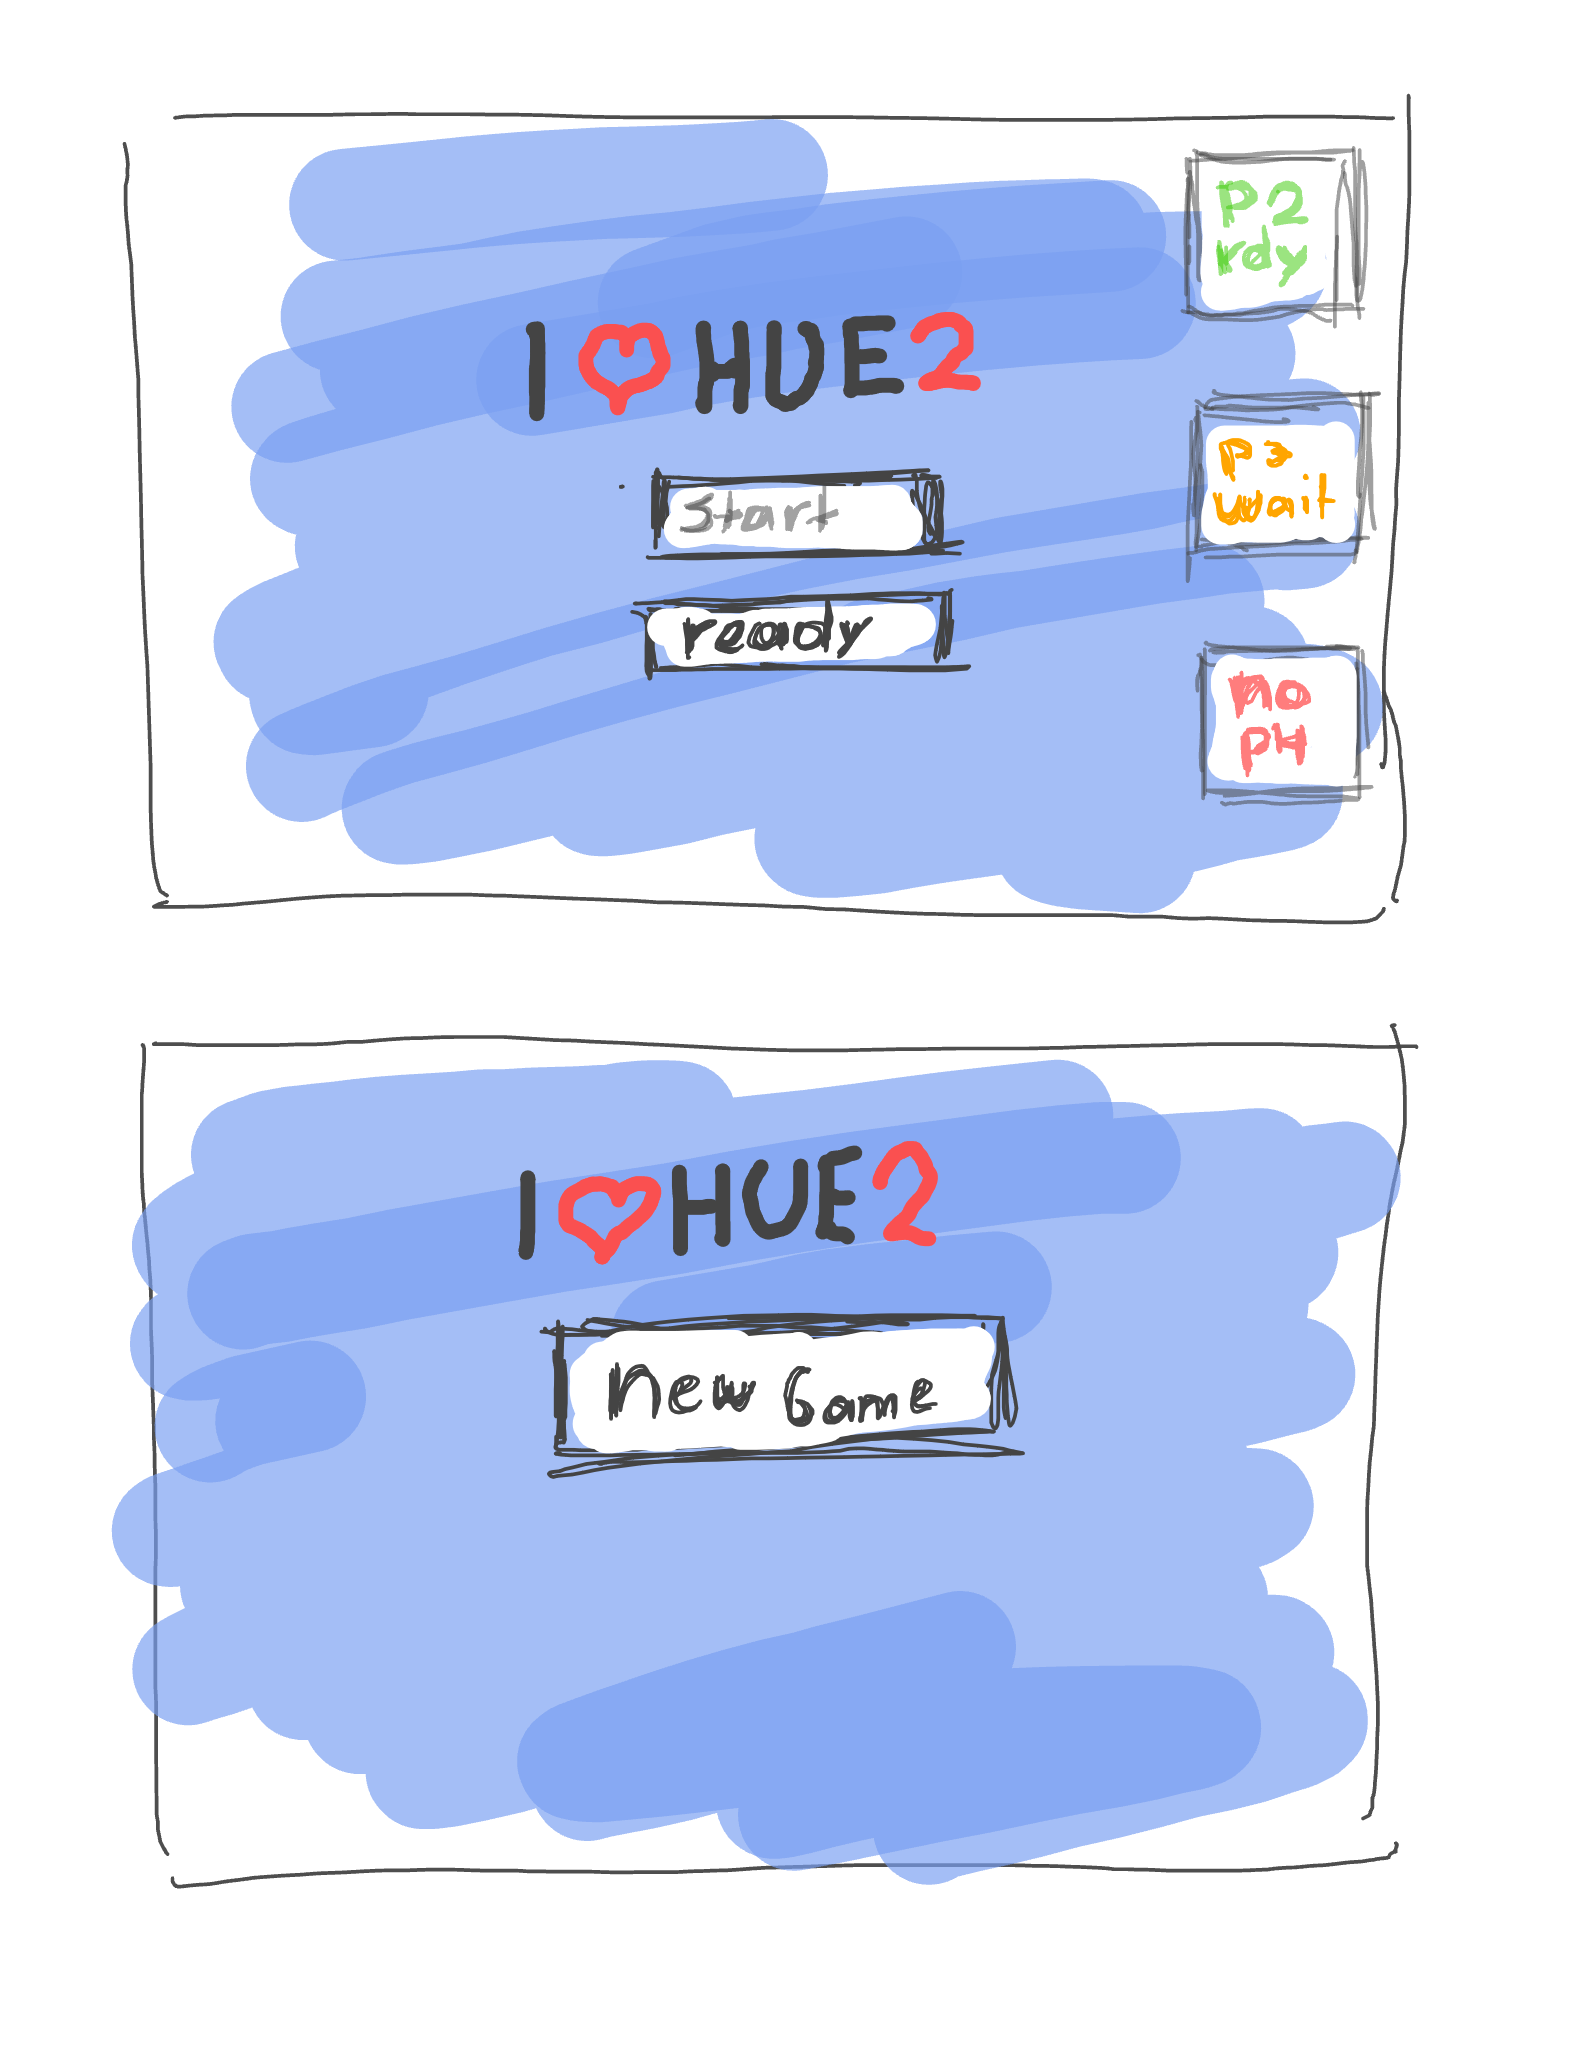 I ♥ HUE 2
Start
ready
P2
rdy
P3
wait
no
P4
I ♥ HUE 2
new Game